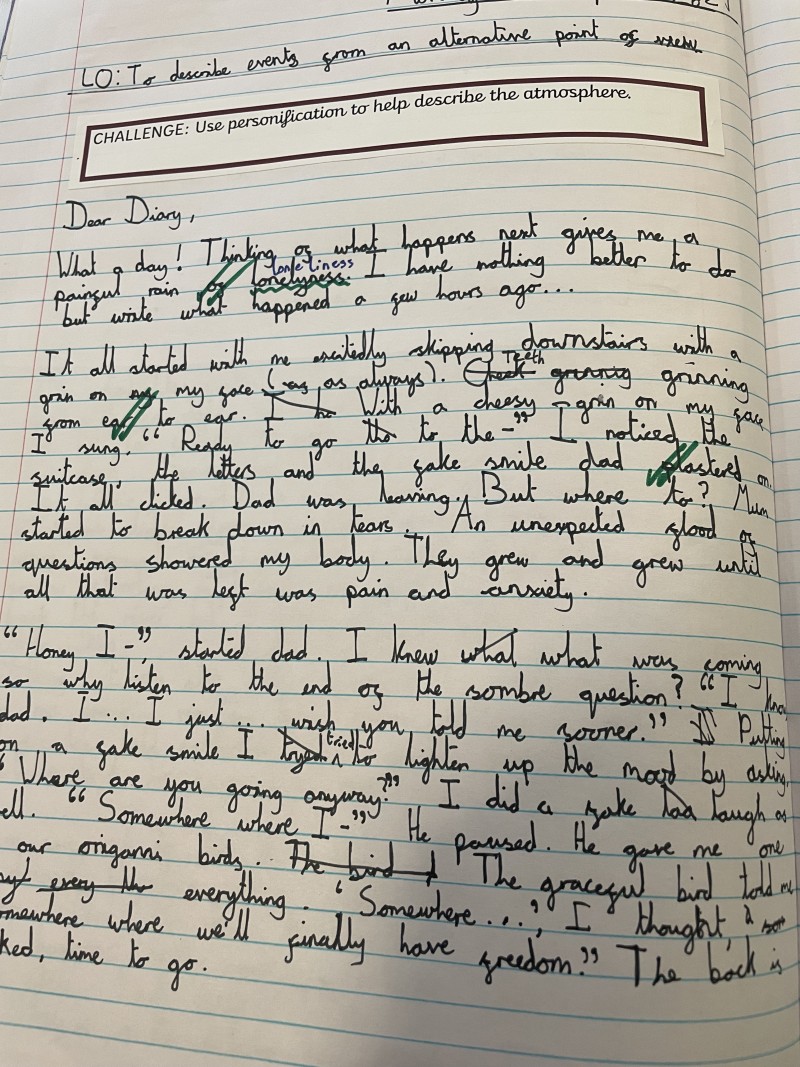 LO: To describe events from an alternative point of view
CHALLENGE: Use personification to help describe the atmosphere.
Dear Diary,
What a day! Thinking of what happens next gives me a
painful rain of lonelyness. loneliness I have nothing better to do
but write what happened a few hours ago...
It all started with me excitedly skipping downstairs with a
grin on my my face (as as always). Cheek Teeth grinnig grinning
from ear to ear. I he With a cheesy grin on my face
I sung. "Ready to go the to the -" I noticed the
suitcase, the letters and the fake smile dad plastered on.
It all clicked. Dad was leaving. But where to? Mum
started to break down in tears. An unexpected flood of
questions showered my body. They grew and grew until
all that was left was pain and anxiety.
"Honey I-", started dad. I knew what what was coming
so why listen to the end of the sombre question? "I know
dad. I... I just... wish you told me sooner." Putting
on a fake smile I tryed tried to lighten up the mood by asking,
"Where are you going anyway?" I did a fake laugh as
ell. "Somewhere where I-" He paused. He gave me one
our origami birds. The bird The graceful bird told me
every the everything. 'Somewhere...', I thought,
omewhere where we'll finally have freedom." The boat is
ked, time to go.